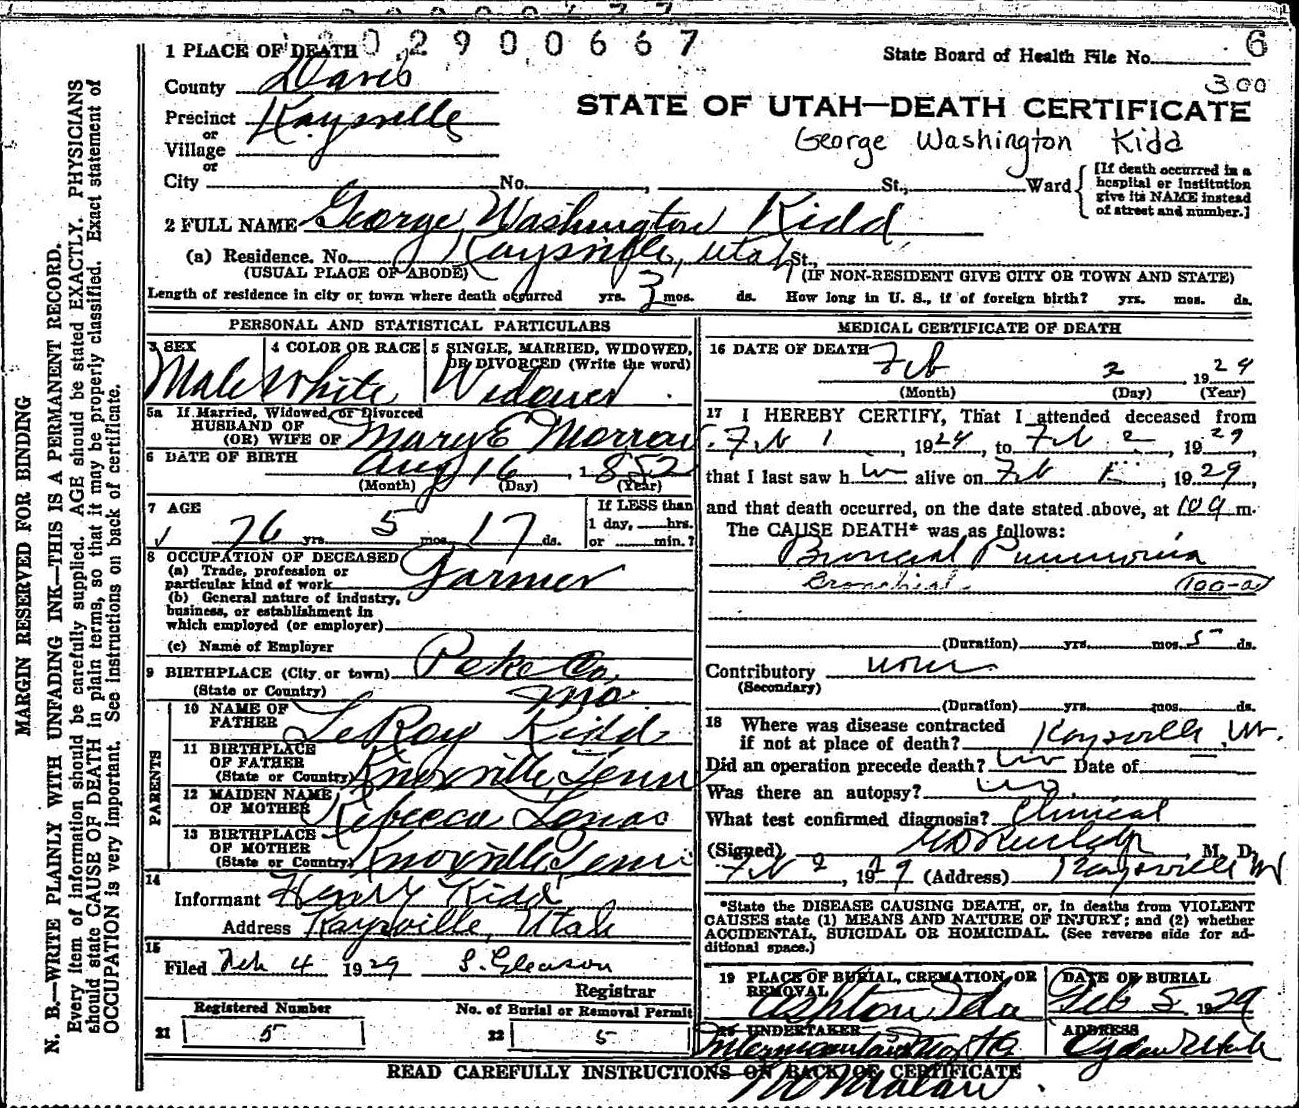 1 PLACE OF DEATH 02900667
State Board of Health File No. 6
County Davis
300
STATE OF UTAH—DEATH CERTIFICATE
Precinct Kaysville
or
Village
George Washington Kidd
or
City No. , St., Ward
[If death occurred in a
hospital or institution
give its NAME instead
of street and number.]
2 FULL NAME George Washington Kidd
(a) Residence. No. Kaysville, Utah St.,
(USUAL PLACE OF ABODE) (IF NON-RESIDENT GIVE CITY OR TOWN AND STATE)
Length of residence in city or town where death occurred yrs. 3 mos. ds. How long in U. S., if of foreign birth? yrs. mos. ds.
PERSONAL AND STATISTICAL PARTICULARS
3 SEX
Male
4 COLOR OR RACE
White
5 SINGLE, MARRIED, WIDOWED,
OR DIVORCED (Write the word)
Widower
5a If Married, Widowed, or Divorced
HUSBAND OF
(OR) WIFE OF Mary E Morrow
6 DATE OF BIRTH Aug 16, 1852
(Month) (Day) (Year)
7 AGE
76 yrs. 5 mos. 17 ds.
If LESS than
1 day, hrs.
or min.?
8 OCCUPATION OF DECEASED
(a) Trade, profession or
particular kind of work Farmer
(b) General nature of industry,
business, or establishment in
which employed (or employer)
(c) Name of Employer
9 BIRTHPLACE (City or town) Peke Co,
(State or Country) Mo.
PARENTS
10 NAME OF
FATHER LeRoy Kidd
11 BIRTHPLACE
OF FATHER
(State or Country) Knoxville, Tenn
12 MAIDEN NAME
OF MOTHER Rebecca Lenac
13 BIRTHPLACE
OF MOTHER
(State or Country) Knoxville, Tenn
14
Informant Henry Kidd
Address Kaysville, Utah
15
Filed Feb 4 1929 S. Gleason
Registrar
Registered Number
21 5
No. of Burial or Removal Permit
22 5
MEDICAL CERTIFICATE OF DEATH
16 DATE OF DEATH Feb 2 1929
(Month) (Day) (Year)
17 I HEREBY CERTIFY, That I attended deceased from
Feb 1, 1924, to Feb 2, 1929
that I last saw h im alive on Feb 1, 1929,
and that death occurred, on the date stated above, at 10 a m.
The CAUSE DEATH* was as follows:
Broncial Pnumonia
Bronchial 100-a
(Duration) yrs. mos. 5 ds.
Contributory none
(Secondary)
(Duration) yrs. mos. ds.
18 Where was disease contracted
if not at place of death? Kaysville, Ut.
Did an operation precede death? no Date of
Was there an autopsy? no
What test confirmed diagnosis? Clinical
(Signed) M. D.
Feb 2, 1929 (Address) Kaysville Ut
*State the DISEASE CAUSING DEATH, or, in deaths from VIOLENT
CAUSES state (1) MEANS AND NATURE OF INJURY; and (2) whether
ACCIDENTAL, SUICIDAL OR HOMICIDAL. (See reverse side for ad-
ditional space.)
19 PLACE OF BURIAL, CREMATION, OR
REMOVAL
Ashton Ida
DATE OF BURIAL
Feb 5 1929
20 UNDERTAKER
ADDRESS
Ogden Utah
READ CAREFULLY INSTRUCTIONS ON BACK OF CERTIFICATE
MARGIN RESERVED FOR BINDING
N. B.—WRITE PLAINLY WITH UNFADING INK—THIS IS A PERMANENT RECORD.
Every item of information should be carefully supplied. AGE should be stated EXACTLY. PHYSICIANS
should state CAUSE OF DEATH in plain terms, so that it may be properly classified. Exact statement of
OCCUPATION is very important. See instructions on back of certificate.